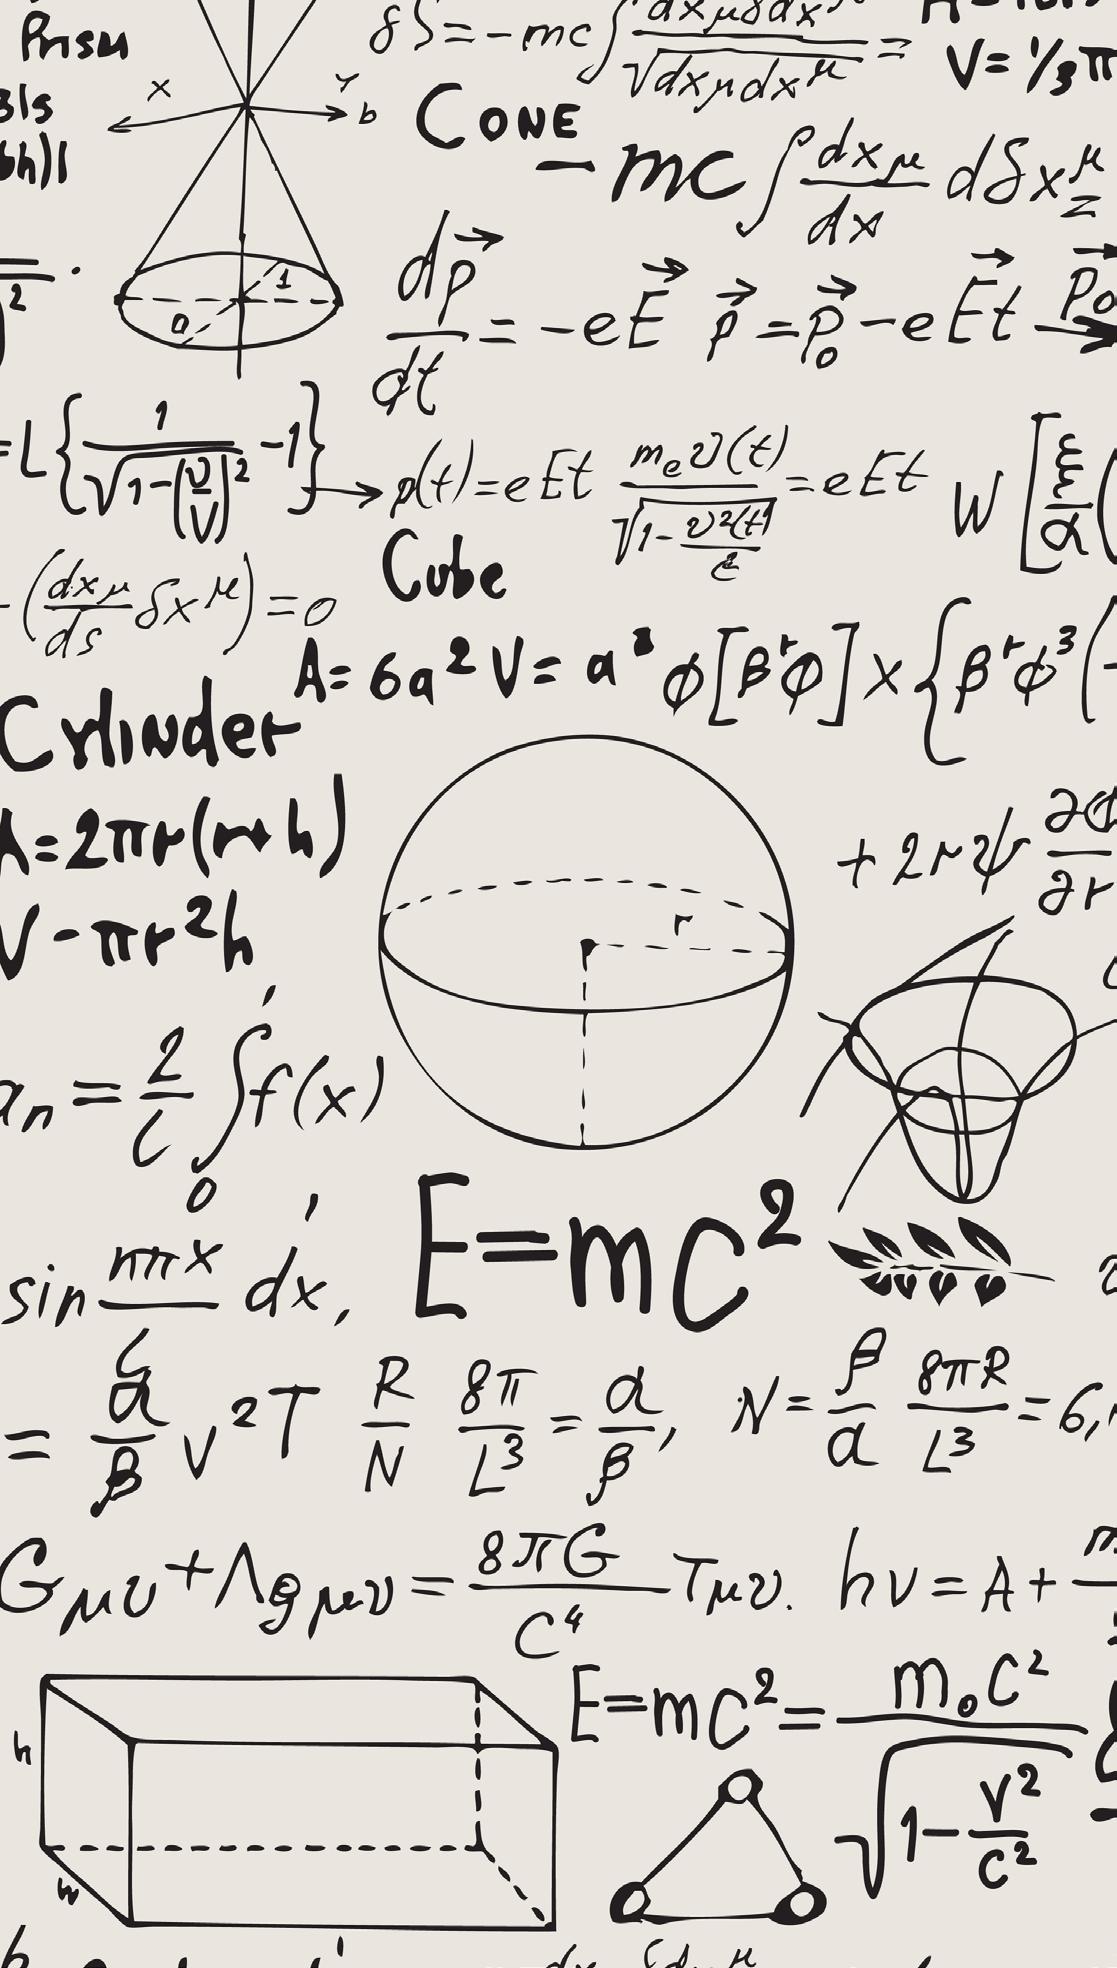 Prism
δS = -mc ∫ dxμδdx^μ / √dxμdx^μ =
V = 1/3 π
x
Y
b
3ls
bh)l
CONE
-mc ∫ dxμ/dx dδx^μ z
1
0
2
dp⃗/dt = -eE⃗ p⃗ = p⃗₀ - eE⃗t P₀
= L { 1 / √1-(v/V)² -1 } → p(t) = eEt mₑv(t) / √1-v²(t)/c² = eEt W [ ξ/α (
- (dxμ/ds δx^μ) = 0
Cube
A = 6a² V = a³ φ[β^rφ] x { β^rφ³ (
Cylinder
A = 2πr(r+h)
V - πr²h
+ 2rψ ∂φ/∂r
r
aₙ = 2/l ∫₀ f(x)
sin nπx/l dx,
E=mc²
= α/β v²T R/N 8π/L³ = α/β, N = β/α 8πR/L³ = 6,
Gμν + Λgμν = 8πG/C⁴ Tμν. hν = A + m
h
w
E=mc² = m₀c² / √1-v²/c²